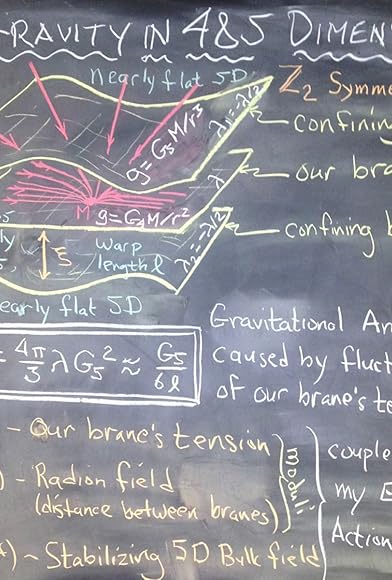 RAVITY IN 4&5 DIMEN
nearly flat 5D
Z₂ Symme
g=G₅M/r³
λ₁=-λ/2
confinin
our bra
M
g=G₃M/r²
ξ
warp
length ℓ
λ₂=-λ/2
confining b
early flat 5D
= 4π/3 λG₅² ≈ G₅/6ℓ
Gravitational An
caused by fluct
of our brane's te
- Our brane's tension
) - Radion field
(distance between branes)
moduli
couple
my E
Action
) - Stabilizing 5D Bulk field